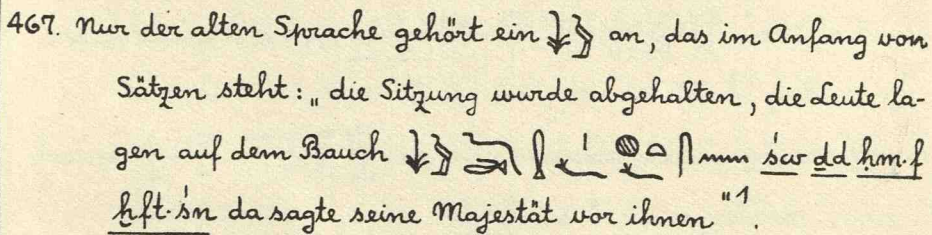 467. Nur der alten Sprache gehört ein 𓇓𓏲 an, das im Anfang von
Sätzen steht: „die Sitzung wurde abgehalten, die Leute la-
gen auf dem Bauch 𓇓𓏲𓆓𓂧𓍛𓏤𓆑𓐍𓏏𓆑𓋴𓈖 św ḏd ḥm·f
ḫft·śn da sagte seine Majestät vor ihnen"¹.